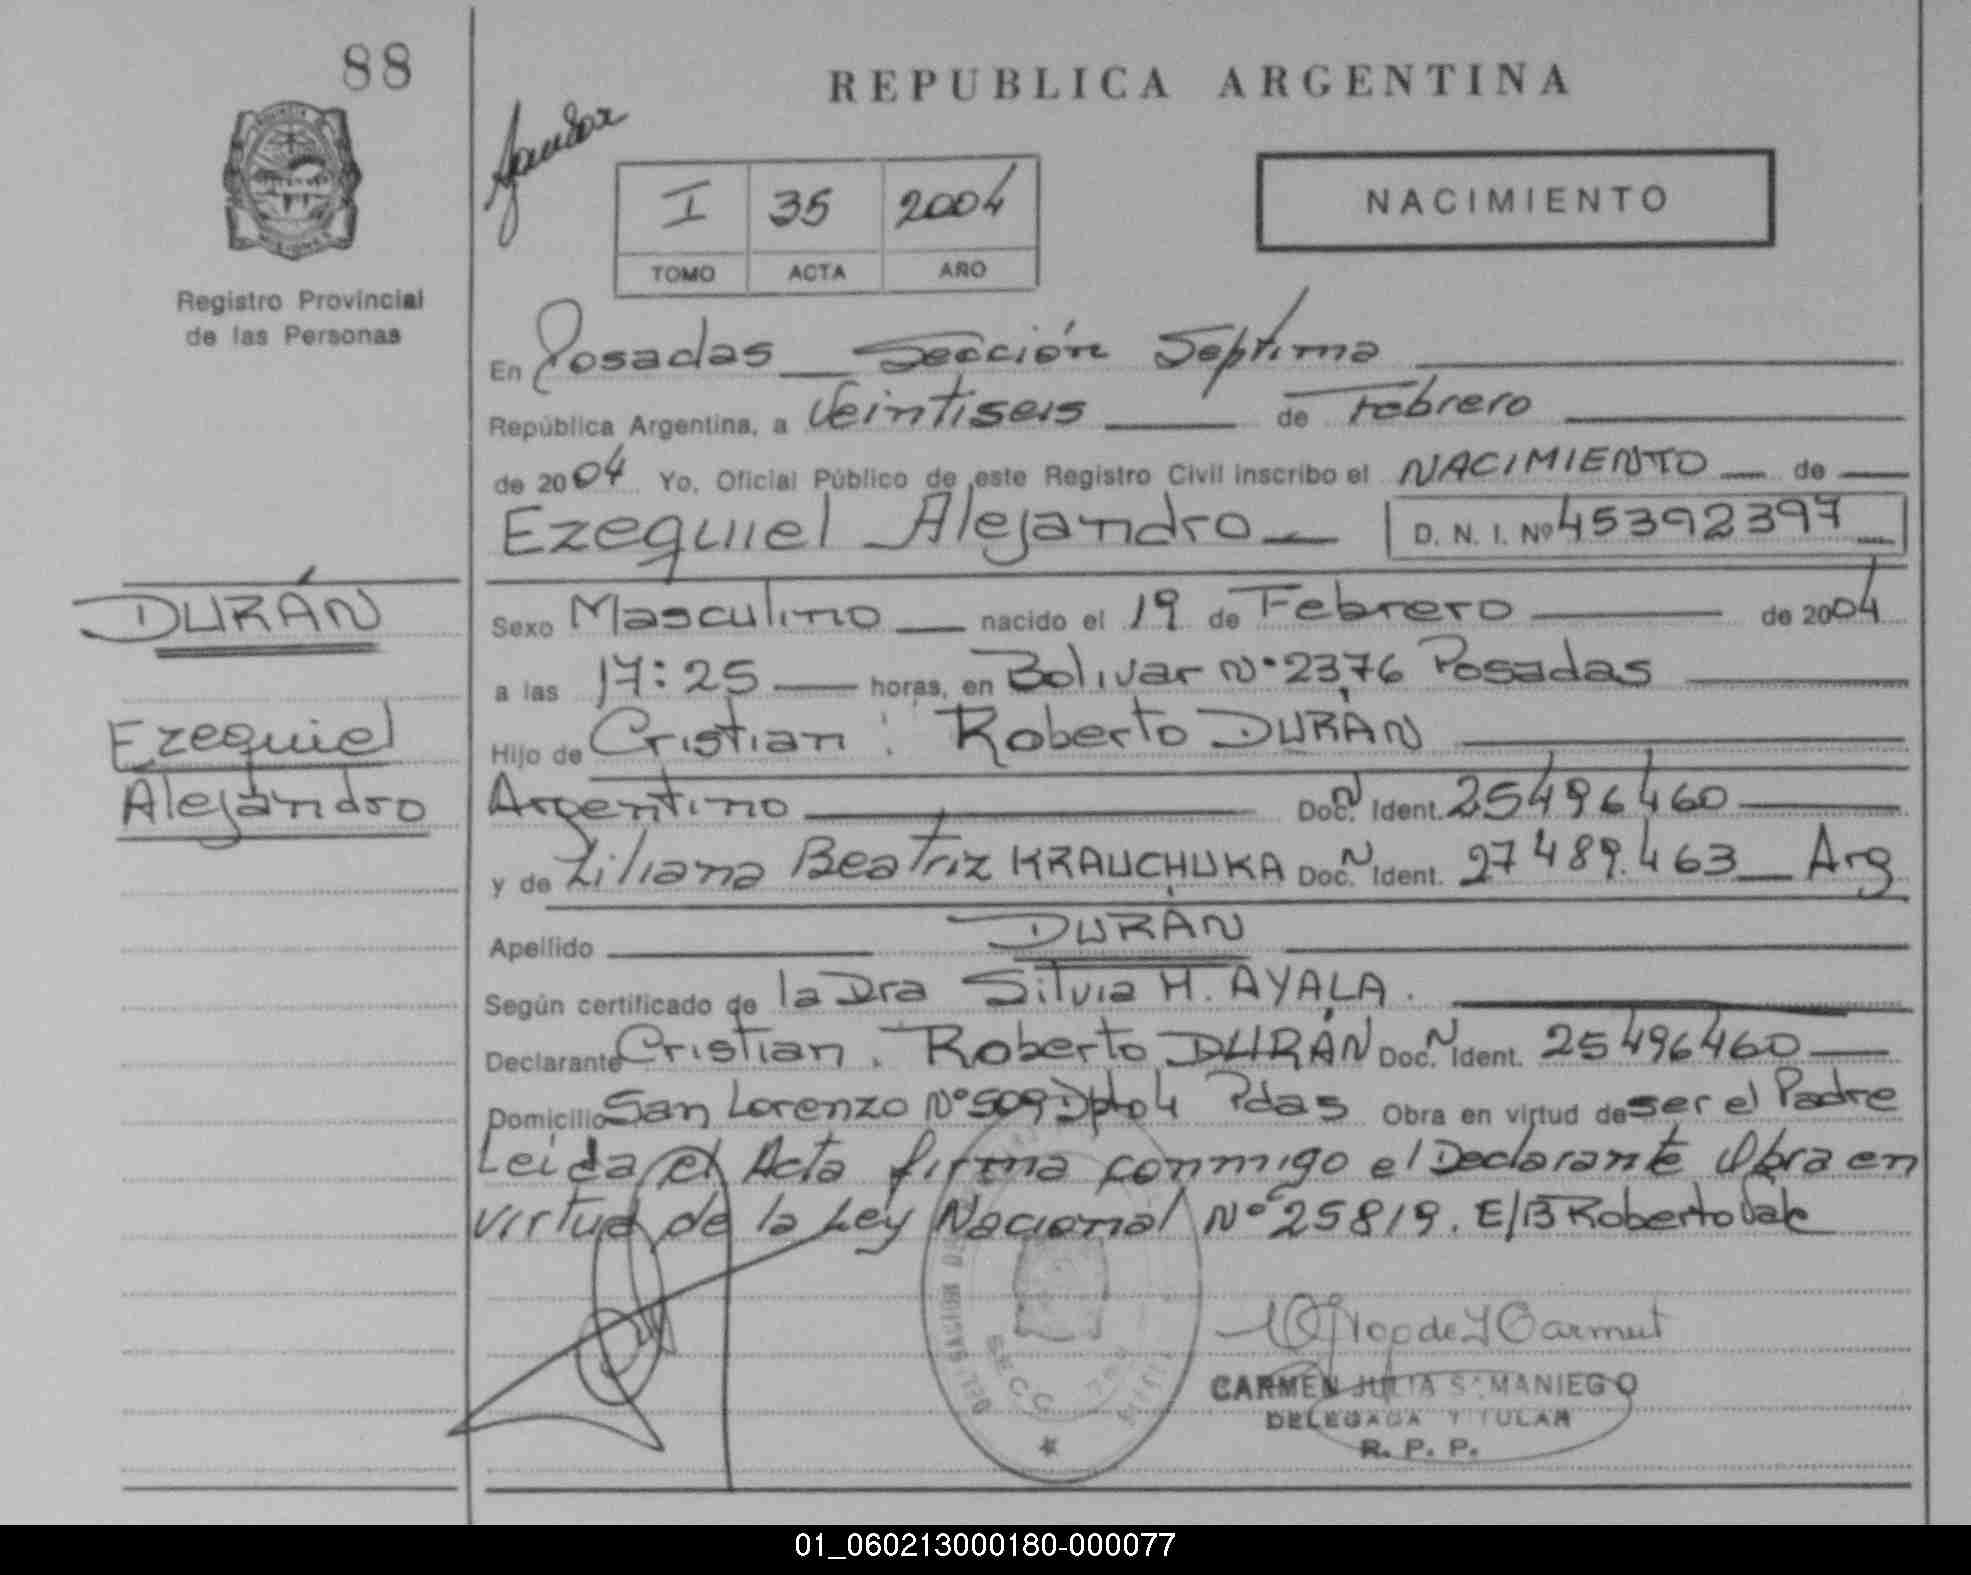 88
REPUBLICA ARGENTINA
I 35 2004
TOMO ACTA AÑO
NACIMIENTO
Registro Provincial
de las Personas
En Posadas Sección Septima
República Argentina, a Veintiseis de Febrero
de 2004 Yo, Oficial Público de este Registro Civil inscribo el NACIMIENTO de
Ezequiel Alejandro D. N. I. Nº 45392397
DURÁN
Ezequiel
Alejandro
Sexo Masculino nacido el 19 de Febrero de 2004
a las 17:25 horas, en Bolivar Nº 2376 Posadas
Hijo de Cristian Roberto DURÁN
Argentino Doc. Ident. 25496460
y de Liliana Beatriz KRAUCHUKA Doc. Ident. 27489.463 Arg
Apellido DURÁN
Según certificado de la Dra Silvia H. AYALA.
Declarante Cristian. Roberto DURÁN Doc. Ident. 25496460
Domicilio San Lorenzo Nº 509 Dpto 4 Pdas Obra en virtud de ser el Padre
Leida el Acta firma conmigo el Declarante Obra en
virtud de la Ley Nacional Nº 25819. E/B Roberto Vale
CARMEN JULIA SAMANIEGO
DELEGADA TITULAR
R. P. P.
01_060213000180-000077